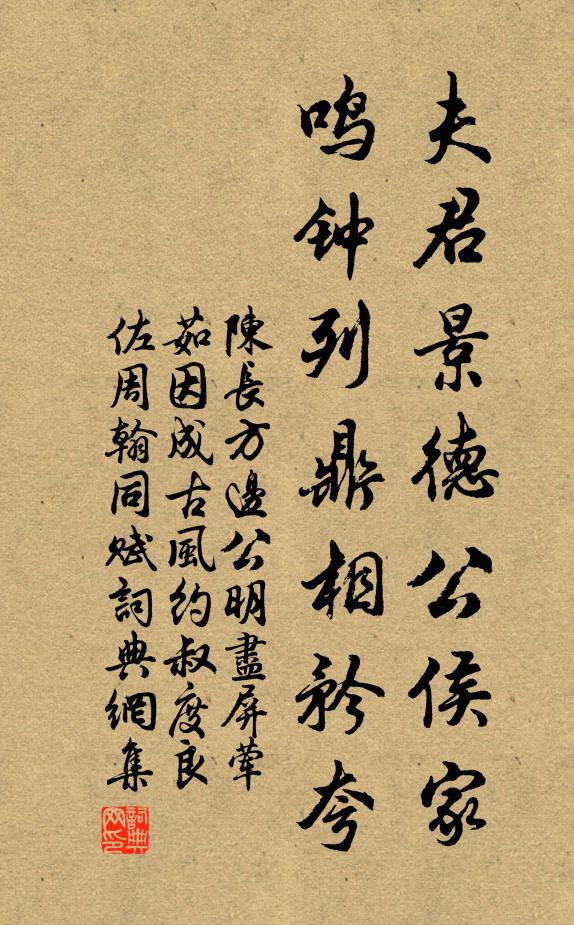 夫君景德公侯家
鸣钟列鼎相矜夸
陳長方邊公明盡屏葷
茹因成古風約叔度良
佐周翰同賦詞典網集
詞典网印